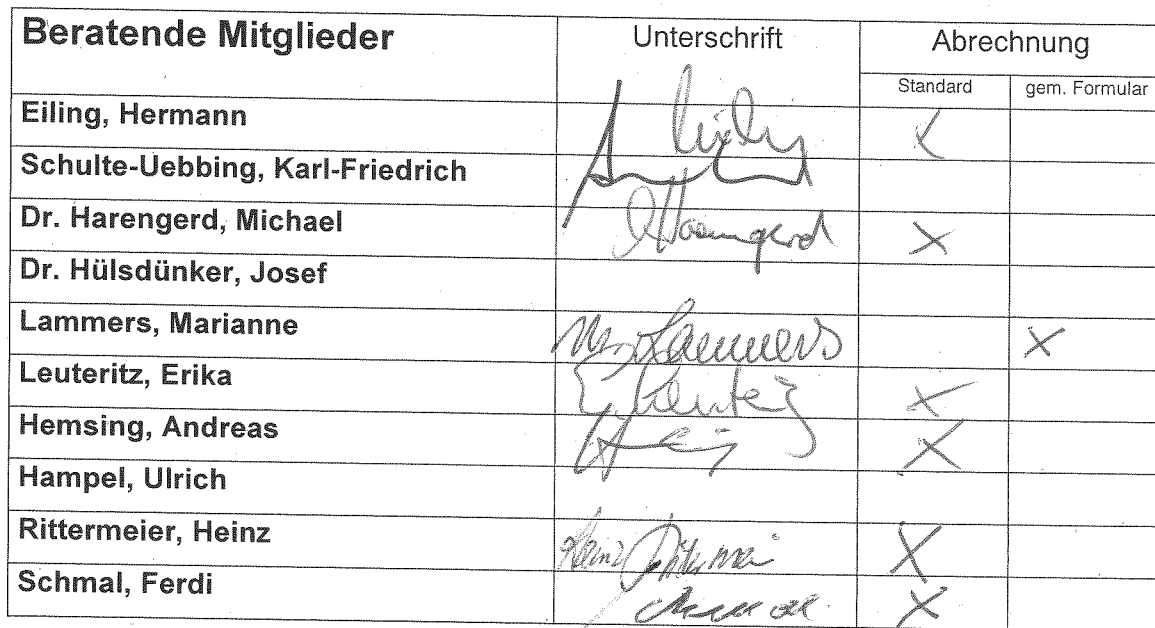 Beratende Mitglieder Unterschrift Abrechnung
Standard gem. Formular
Eiling, Hermann X
Schulte-Uebbing, Karl-Friedrich
Dr. Harengerd, Michael Harengerd X
Dr. Hülsdünker, Josef
Lammers, Marianne M. Lammers X
Leuteritz, Erika X
Hemsing, Andreas X
Hampel, Ulrich
Rittermeier, Heinz Heinz X
Schmal, Ferdi X